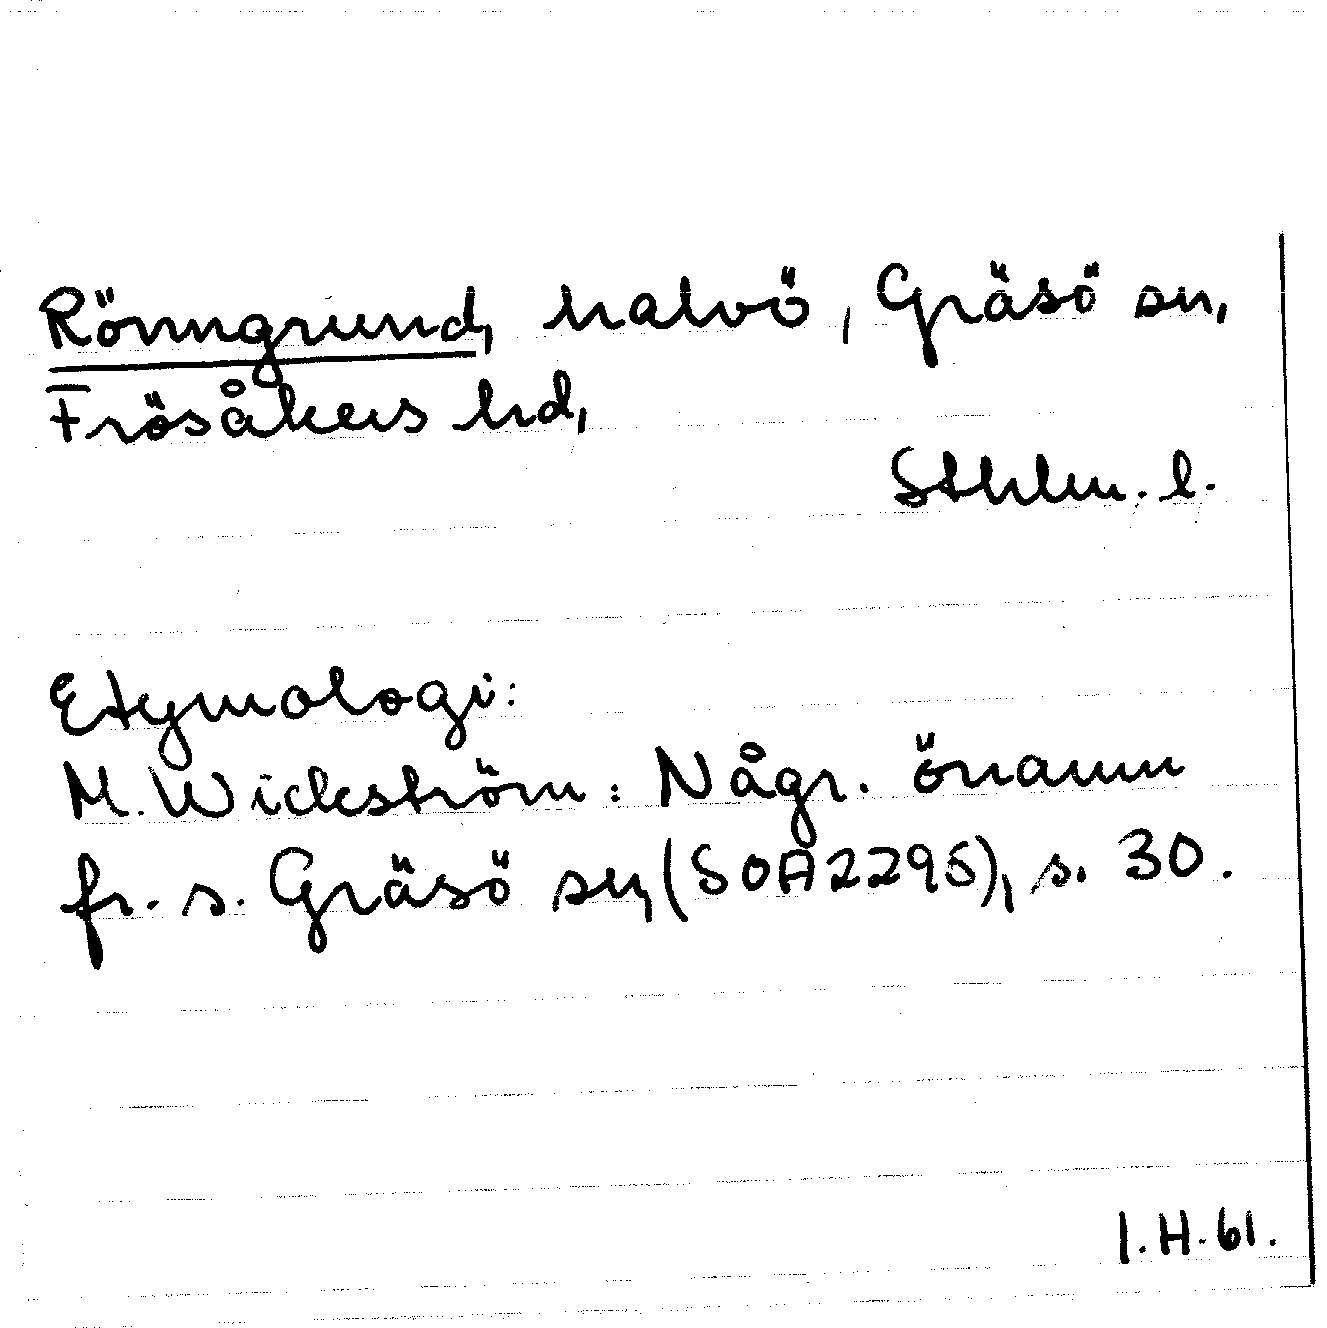 Rönngrund, halvö, Gräsö sn,
Frösåkers hd,
Sthlm. l.
Etymologi:
M. Wickström: Någr. önamn
fr. s. Gräsö sn, (SOA2295), s. 30.
I. H. 61.